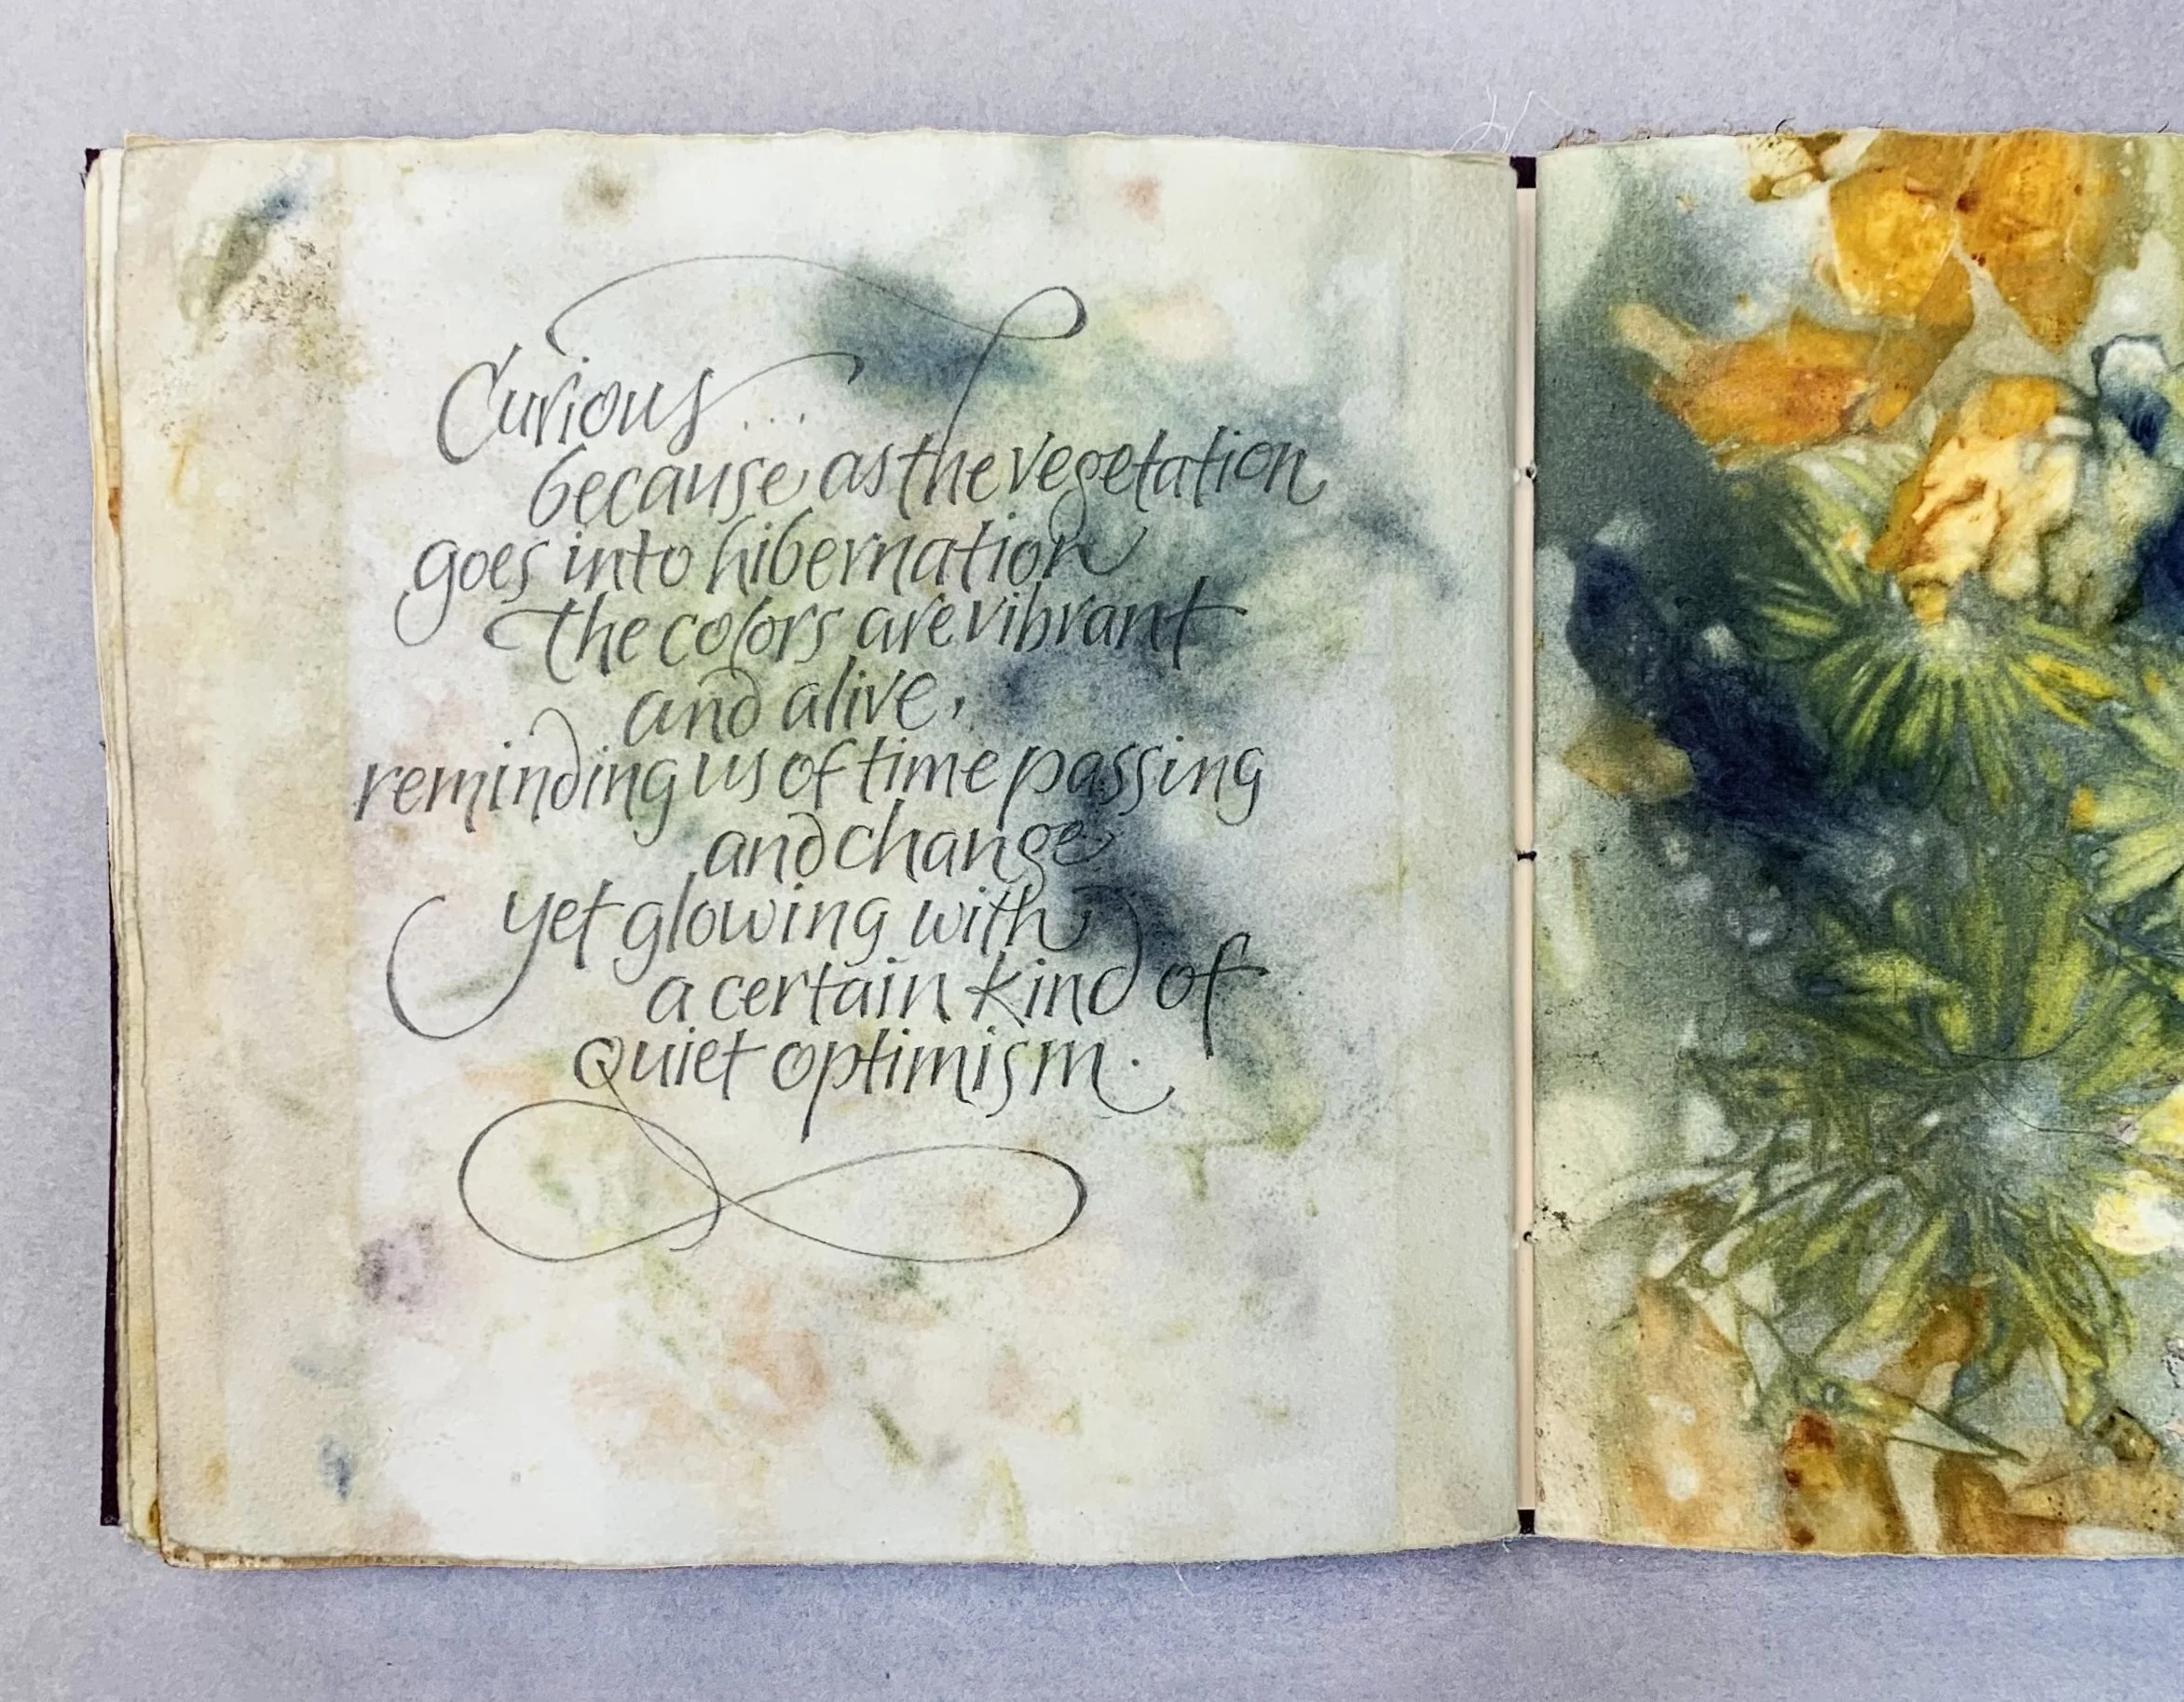 Curious ....
because as the vegetation
goes into hibernation
the colors are vibrant
and alive,
reminding us of time passing
and change
yet glowing with
a certain kind of
quiet optimism.